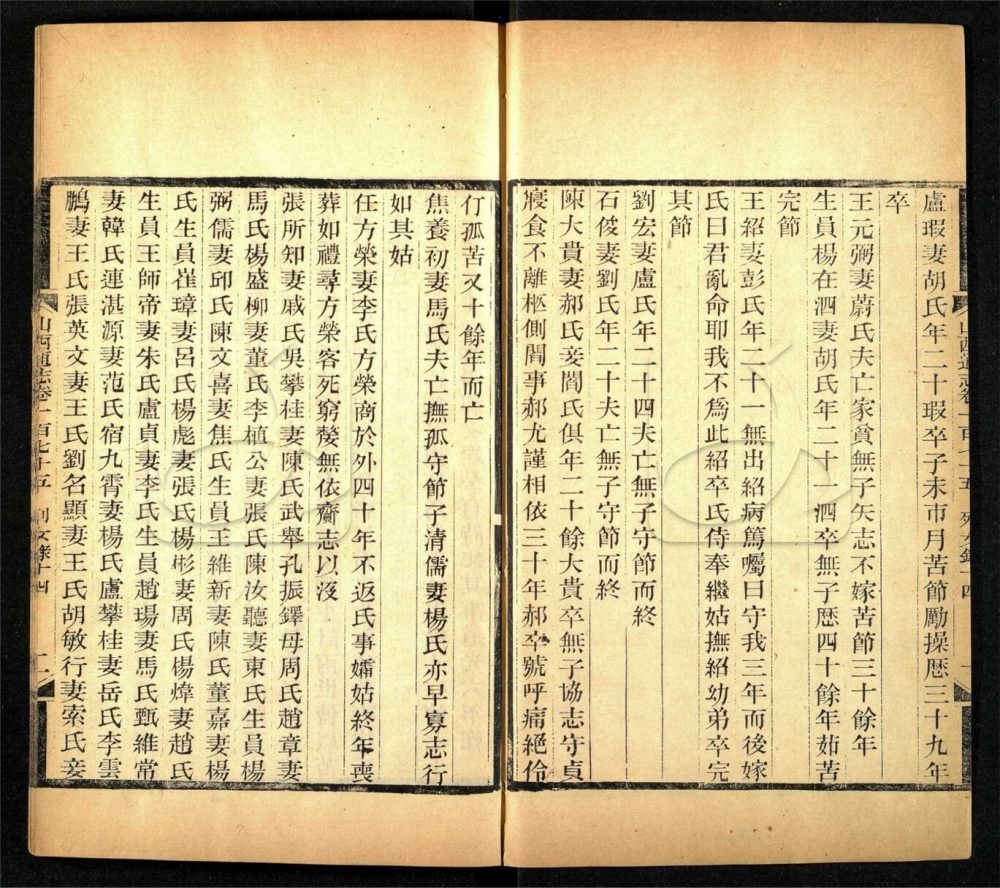 盧瑕妻胡氏年二十瑕卒子未市月苦節勵操歴三十九年
卒
王元弼妻蔚氏夫亡家貧無子矢志不嫁苦節三十餘年
生員楊在泗妻胡氏年二十一泗卒無子歴四十餘年茹苦
完節
王紹妻彭氏年二十一無出紹病篤囑曰守我三年而後嫁
氏曰君亂命耶我不爲此紹卒氏侍奉繼姑撫紹幼弟卒完
其節
劉宏妻盧氏年二十四夫亡無子守節而終
石俊妻劉氏年二十夫亡無子守節而終
陳大貴妻郝氏妾閻氏俱年二十餘大貴卒無子協志守貞
寢食不離柩側閻事郝尤謹相依三十年郝卒號呼痛絕伶
仃孤苦又十餘年而亡
焦養初妻馬氏夫亡撫孤守節子清儒妻楊氏亦早寡志行
如其姑
任方榮妻李氏方榮商於外四十年不返氏事孀姑終年喪
葬如禮尋方榮客死窮嫠無依齎志以沒
張所知妻戚氏吳攀桂妻陳氏武舉孔振鐸母周氏趙章妻
馬氏楊盛柳妻董氏李植公妻張氏陳汝聽妻東氏生員楊
弼儒妻邱氏陳文喜妻焦氏生員王維新妻陳氏董嘉妻楊
氏生員崔璋妻呂氏楊彪妻張氏楊彬妻周氏楊煒妻趙氏
生員王師帝妻朱氏盧貞妻李氏生員趙瑒妻馬氏甄維常
妻韓氏連湛源妻范氏宿九霄妻楊氏盧攀桂妻岳氏李雲
鵬妻王氏張英文妻王氏劉名顯妻王氏胡敏行妻索氏妾
山西通志卷一百七十五 列女錄十四 二